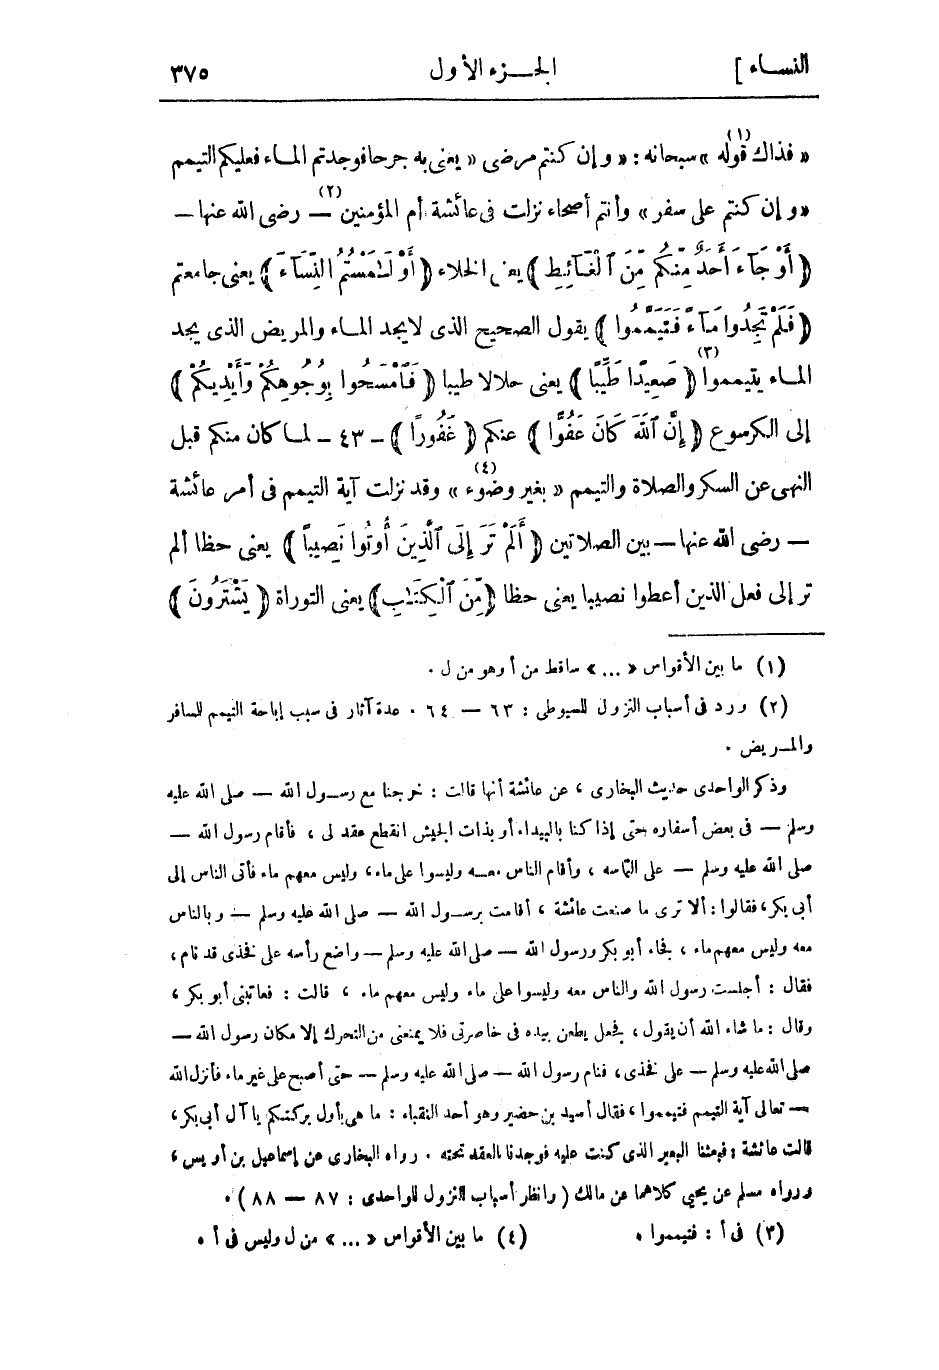 النساء ] الجزء الأول ٣٧٥
« فذاك قوله »(١) سبحانه : « وإن كنتم مرضى « يعنى به جرحا فوجدتم الماء فعليكم التيمم
« وإن كنتم على سفر » وأنتم أصحاء نزلت فى عائشة أم المؤمنين(٢) — رضى الله عنها —
﴿ أَوْ جَآءَ أَحَدٌ مِّنكُم مِّنَ ٱلْغَآئِطِ ﴾ يعنى الخلاء ﴿ أَوْ لَـٰمَسْتُمُ ٱلنِّسَآءَ ﴾ يعنى جامعتم
﴿ فَلَمْ تَجِدُوا مَآءً فَتَيَمَّمُوا ﴾ يقول الصحيح الذى لا يجد الماء والمريض الذى يجد
الماء يتيمموا(٣) ﴿ صَعِيدًا طَيِّبًا ﴾ يعنى حلالا طيبا ﴿ فَٱمْسَحُوا بِوُجُوهِكُمْ وَأَيْدِيكُمْ ﴾
إلى الكرسوع ﴿ إِنَّ ٱللَّهَ كَانَ عَفُوًّا ﴾ عنكم ﴿ غَفُورًا ﴾ - ٤٣ - لما كان منكم قبل
النهى عن السكر والصلاة والتيمم « بغير وضوء »(٤) وقد نزلت آية التيمم فى أمر عائشة
— رضى الله عنها — بين الصلاتين ﴿ أَلَمْ تَرَ إِلَى ٱلَّذِينَ أُوتُوا نَصِيبًا ﴾ يعنى حظا ألم
تر إلى فعل الذين أعطوا نصيبا يعنى حظا ﴿ مِّنَ ٱلْكِتَـٰبِ ﴾ يعنى التوراة ﴿ يَشْتَرُونَ ﴾
(١) ما بين الأقواس « ... » ساقط من أ وهو من ل .
(٢) ورد فى أسباب النزول للسيوطى : ٦٣ — ٦٤ . عدة آثار فى سبب إباحة التيمم للسافر
والمريض .
وذكر الواحدى حديث البخارى ، عن عائشة أنها قالت : خرجنا مع رسول الله — صلى الله عليه
وسلم — فى بعض أسفاره حتى إذا كنا بالبيداء أو بذات الجيش انقطع عقد لى ، فأقام رسول الله —
صلى الله عليه وسلم — على التماسه ، وأقام الناس معه وليسوا على ماء ، وليس معهم ماء فأتى الناس إلى
أبى بكر ، فقالوا : ألا ترى ما صنعت عائشة ، أقامت برسول الله — صلى الله عليه وسلم — وبالناس
معه وليس معهم ماء ، فجاء أبو بكر ورسول الله — صلى الله عليه وسلم — واضع رأسه على فخذى قد نام ،
فقال : أجلست رسول الله والناس معه وليسوا على ماء وليس معهم ماء ، قالت : فعاتبنى أبو بكر ،
وقال : ما شاء الله أن يقول ، فجعل يطعن بيده فى خاصرتى فلا يمنعنى من التحرك إلا مكان رسول الله —
صلى الله عليه وسلم — على فخذى ، فنام رسول الله — صلى الله عليه وسلم — حتى أصبح على غير ماء فأنزل الله
— تعالى آية التيمم فتيمموا ، فقال أسيد بن حضير وهو أحد النقباء : ما هى بأول بركتكم يا آل أبى بكر ،
قالت عائشة : فبعثنا البعير الذى كنت عليه فوجدنا العقد تحته . رواه البخارى عن إسماعيل بن أويس ،
ورواه مسلم عن يحيى كلاهما عن مالك ( وانظر أسباب النزول للواحدى : ٨٧ — ٨٨ ) .
(٣) فى أ : فتيمموا . (٤) ما بين الأقواس « ... » من ل وليس فى أ .